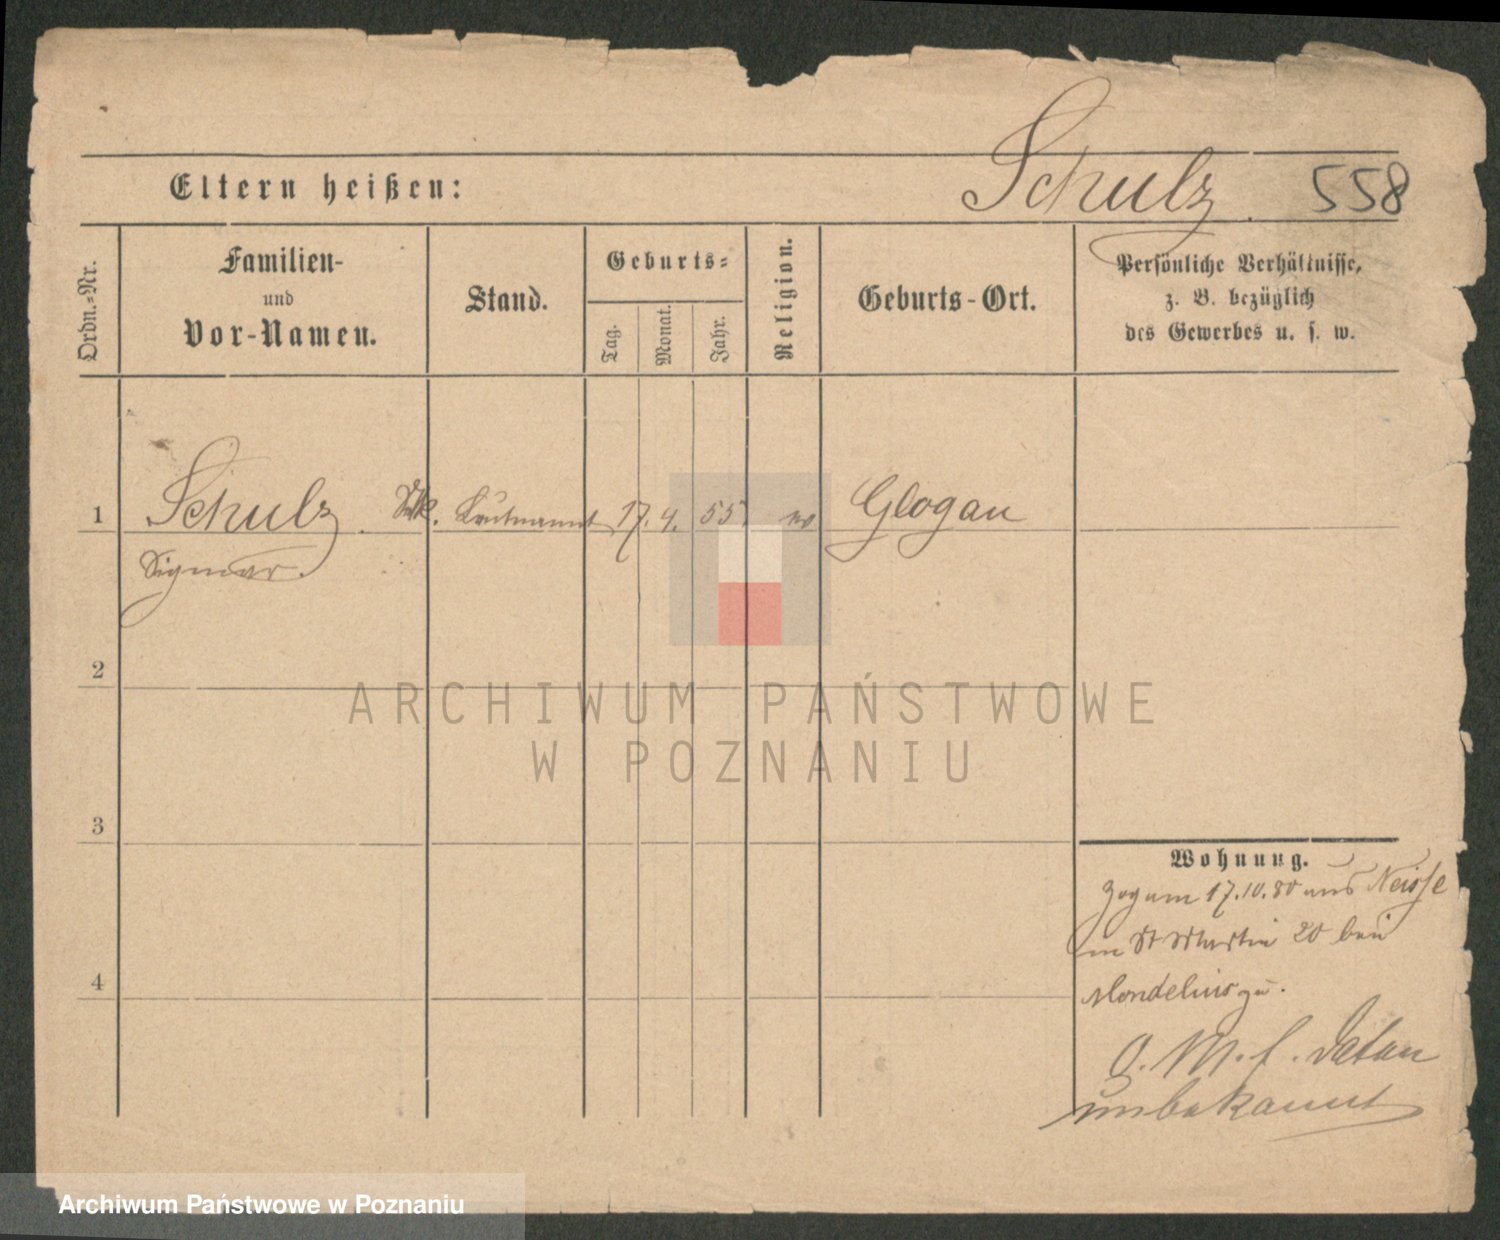 Schulz. 558
Eltern heißen:
Ordn.-Nr.
Familien-
und
Vor-Namen.
Stand.
Geburts-
Tag.
Monat.
Jahr.
Religion.
Geburts-Ort.
Persönliche Verhältnisse,
z. B. bezüglich
des Gewerbes u. s. w.
1 Schulz. Lieutenant 17. 4. 55 Glogau
Sigmar.
2
ARCHIWUM PAŃSTWOWE
W POZNANIU
3
Wohnung.
Zog am 17.10.80 aus Neisse
in St Martin 20 bei
Mondelius zu.
4
O. M. f. Datum
unbekannt
Archiwum Państwowe w Poznaniu